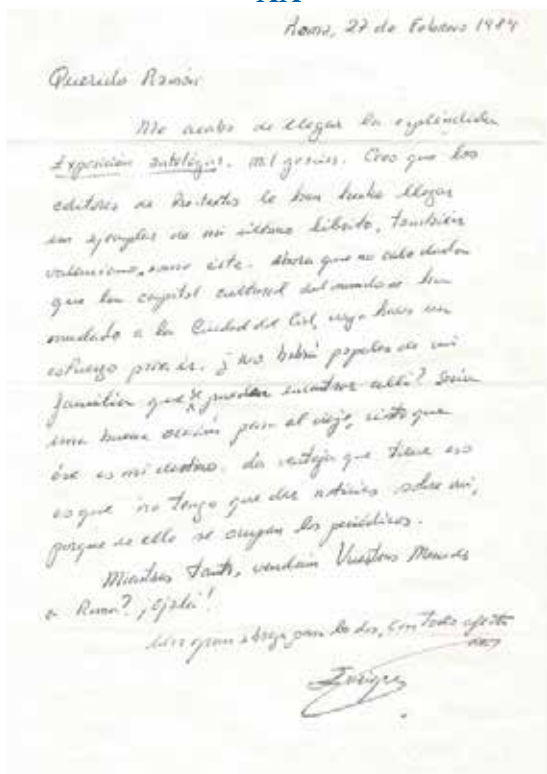 Roma, 27 de Febrero 1984
Querido Ramón
Me acaba de llegar la espléndida
Exposición antológica. Mil gracias. Creo que los
editores de Pre-textos le han hecho llegar
un ejemplar de mi último librito, también
valenciano, como éste. Ahora que no cabe dudar
que la capital cultural del mundo se ha
mudado a la Ciudad del Cid, voy a hacer un
esfuerzo para ir. ¿No habrá papeles de mi
familia que se puedan encontrar allí? Sería
una buena ocasión para el viaje, visto que
ése es mi destino. La ventaja que tiene eso
es que no tengo que dar noticias sobre mí,
porque de ello se ocupan los periódicos.
Mientras tanto, vendrán Vuestras Mercedes
a Roma? ¡Ojalá!
Un gran abrazo para los dos, con todo afecto
Enrique